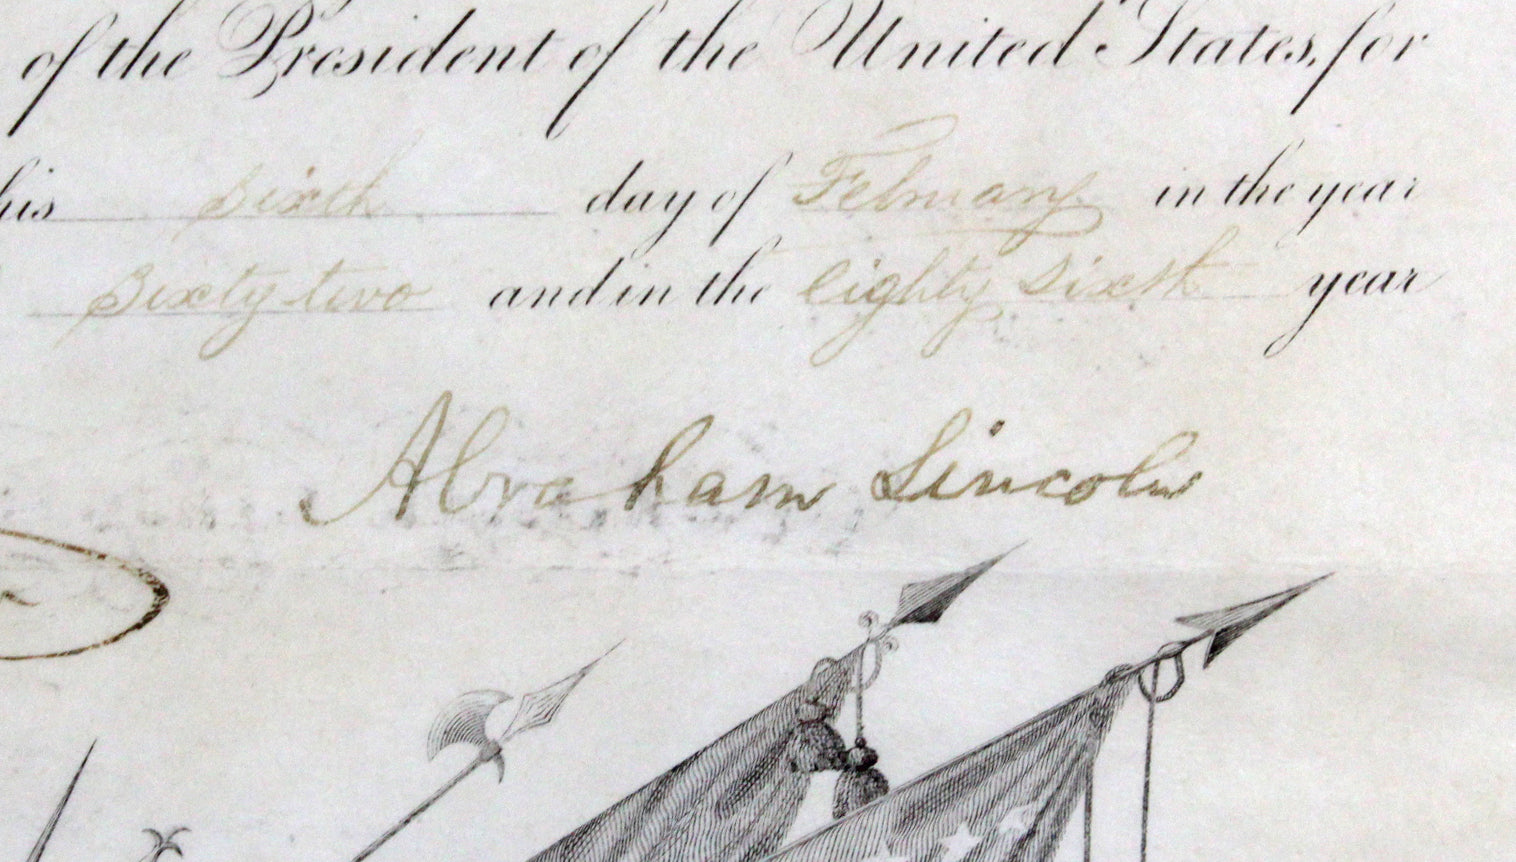 of the President of the United States, for
his sixth day of February in the year
Sixty two and in the eighty sixth year
Abraham Lincoln